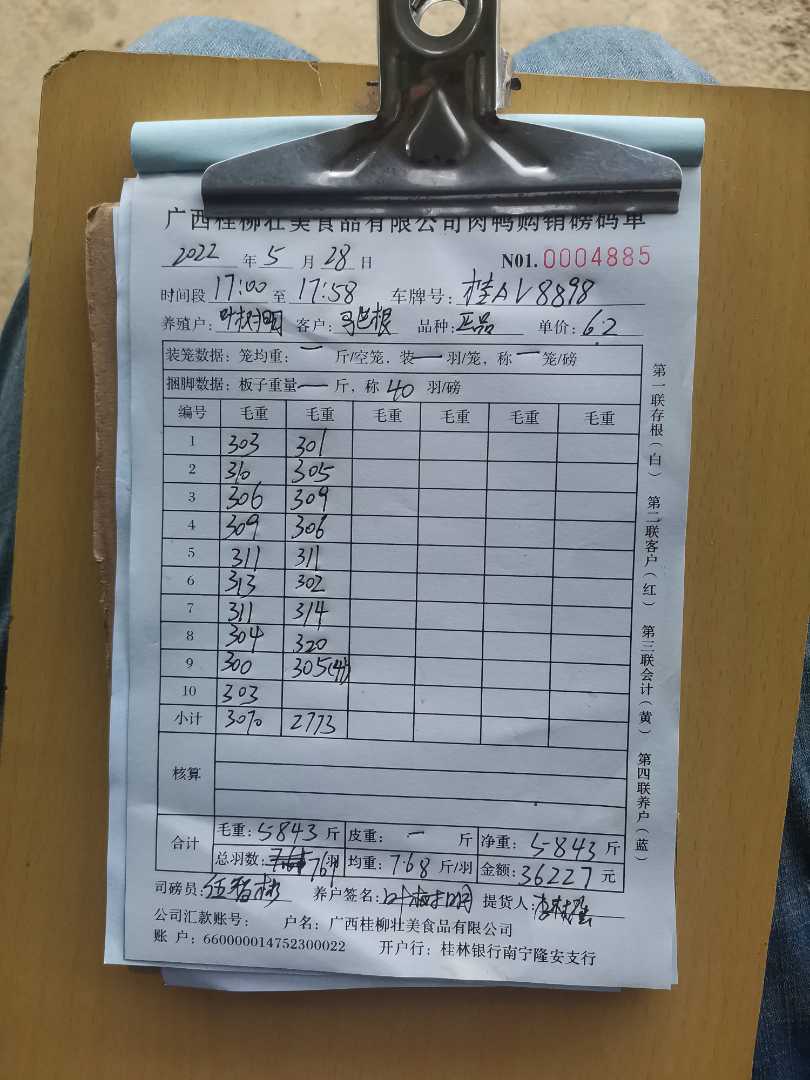 广西桂柳壮美食品有限公司肉鸭购销磅码单
2022 年 5 月 28 日 N01. 0004885
时间段 17:00 至 17:58 车牌号: 桂AV8898
养殖户: 叶树明 客户: 马巴根 品种: 正品 单价: 6.2
装笼数据: 笼均重: 一 斤/空笼, 装 一 羽/笼, 称 一 笼/磅
捆脚数据: 板子重量 一 斤, 称 40 羽/磅
编号 毛重 毛重 毛重 毛重 毛重 毛重
1 303 301
2 310 305
3 306 309
4 309 306
5 311 311
6 313 302
7 311 314
8 304 320
9 300 305(41)
10 303
小计 3070 2773
核算
合计 毛重: 5843 斤 皮重: 一 斤 净重: 5843 斤
总羽数: 761 羽 均重: 7.68 斤/羽 金额: 36227 元
司磅员: 养户签名: 叶树明 提货人:
公司汇款账号: 户名: 广西桂柳壮美食品有限公司
账 户: 660000014752300022 开户行: 桂林银行南宁隆安支行
第一联存根(白) 第二联客户(红) 第三联会计(黄) 第四联养户(蓝)